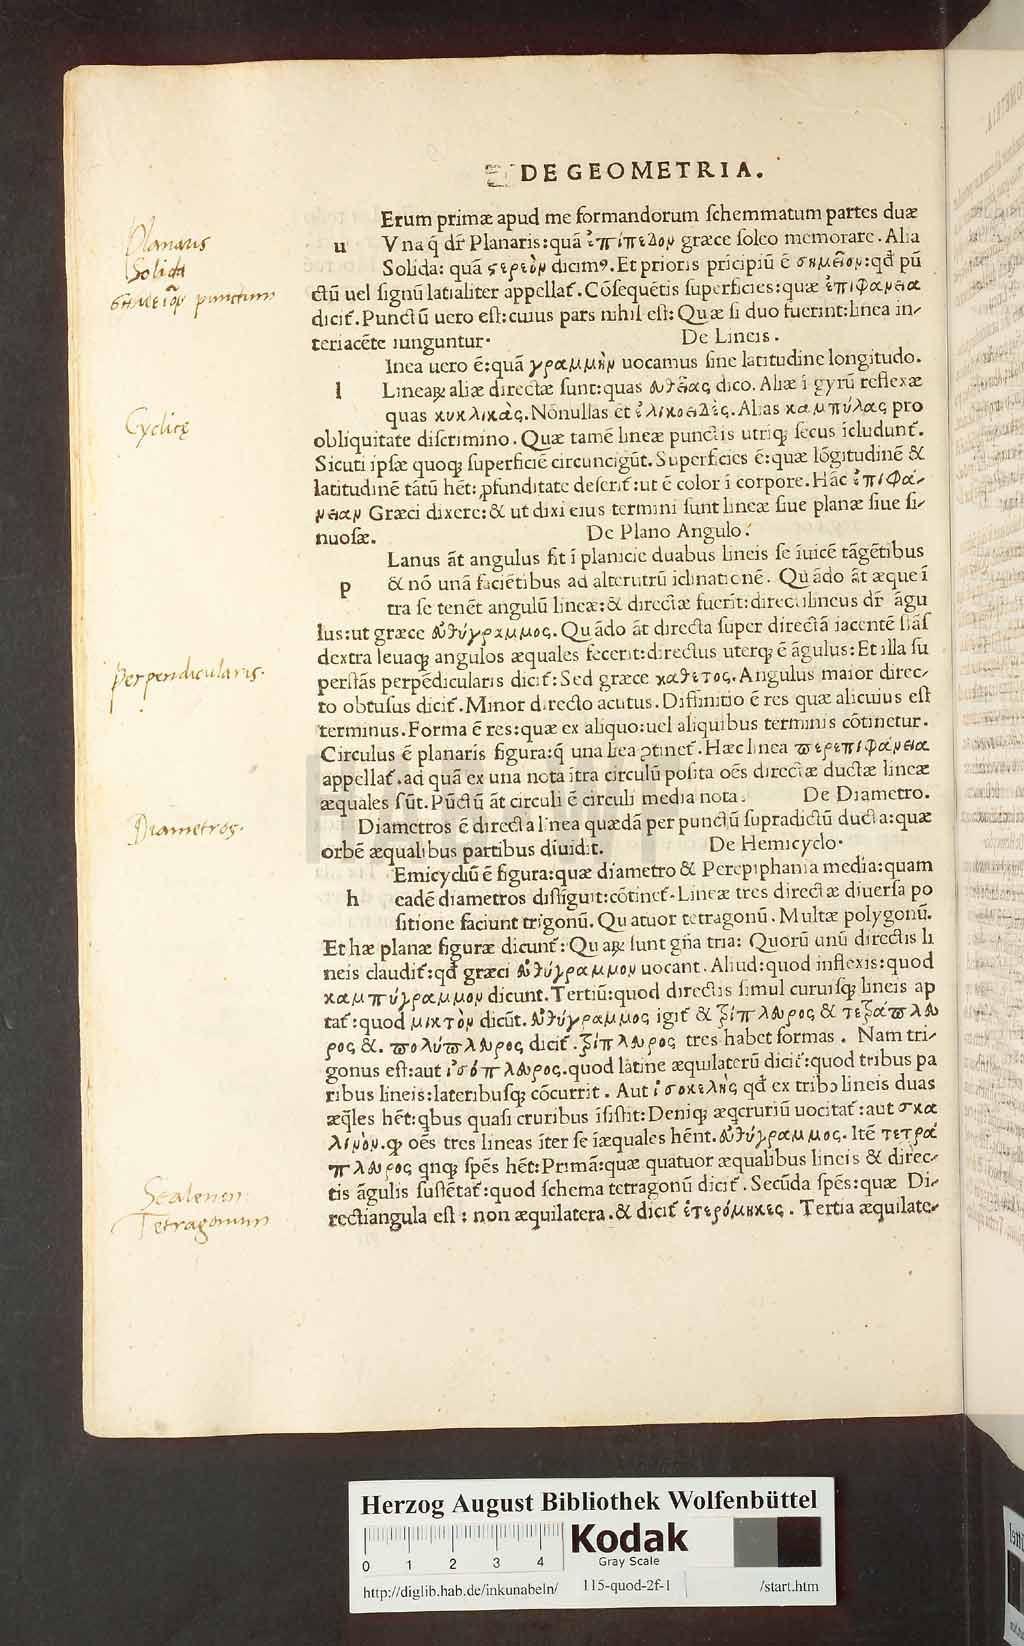 DE GEOMETRIA.
Erum primæ apud me formandorum ſchemmatum partes duæ
u Vna q̃ dr̃ Planaris:quã ἐπίπεδον græce ſoleo memorare. Alia
Solida: quã ςερεὸν dicimꝰ. Et prioris prĩcipiũ ẽ σημεῖον:qđ pũ
ctũ uel ſignũ latialiter appellat̃. Cõſequẽtis ſuperficies:quæ ἐπιφανεια
dicit̃. Punctũ uero eſt:cuius pars nihil eſt: Quæ ſi duo fuerint:linea in-
teriacẽte iunguntur. De Lineis.
Inea uero ẽ:quã γραμμὴν uocamus ſine latitudine longitudo.
l Lineaꝝ aliæ directæ ſunt:quas ἐυθείας dico. Aliæ ĩ gyrũ reflexæ
quas κυκλικὰς. Nõnullas et ἑλικοειδὲς. Alias καμπύλας pro
obliquitate diſcrimino. Quæ tamẽ lineæ punctis utriqꝫ ſecus ĩcludunt̃.
Sicuti ipſæ quoqꝫ ſuperficiẽ circuncigũt. Superficies ẽ:quæ lõgitudinẽ &
latitudinẽ tãtũ hẽt: ꝓfunditate deſerit̃:ut ẽ color ĩ corpore. Hãc ἐπιφά-
νειαν Græci dixere:& ut dixi eius termini ſunt lineæ ſiue planæ ſiue ſi-
nuoſæ. De Plano Angulo.
Lanus ãt angulus fit ĩ planicie duabus lineis ſe ĩuicẽ tãgẽtibus
p & nõ unã faciẽtibus ad alterutrũ ĩclinationẽ. Quãdo ãt æque ĩ
tra ſe tenẽt angulũ lineæ:& directæ fuerĩt:directilineus dr̃ ãgu
lus:ut græce ἐυθύγραμμος. Quãdo ãt directa ſuper directã iacentẽ ſtãs
dextra leuaqꝫ angulos æquales fecerit:directus uterqꝫ ẽ ãgulus: Et illa ſu
perſtãs perpẽdicularis dicit̃: Sed græce καθετος. Angulus maior direc-
to obtuſus dicit̃. Minor directo acutus. Diffinitio ẽ res quæ alicuius eſt
terminus. Forma ẽ res:quæ ex aliquo:uel aliquibus terminis cõtinetur.
Circulus ẽ planaris figura:q̃ una liea ꝯtinet̃. Hæc linea ϖερεπιφάνεια
appellat̃. ad quã ex una nota ĩtra circulũ poſita oẽs directæ ductæ lineæ
æquales ſũt. Pũctũ ãt circuli ẽ circuli media nota. De Diametro.
Diametros ẽ directa linea quædã per punctũ ſupradictũ ducta:quæ
orbẽ æqualibus partibus diuidit. De Hemicyclo.
Emicycliũ ẽ figura:quæ diametro & Perepiphania media:quam
h eadẽ diametros diſtĩguit:cõtinet̃. Lineæ tres directæ diuerſa po
ſitione faciunt trigonũ. Quatuor tetragonũ. Multæ polygonũ.
Et hæ planæ figuræ dicunt̃: Quaꝝ ſunt gña tria: Quorũ unũ directis li
neis claudit̃:qđ græci ἐυθύγραμμον uocant. Aliud:quod inflexis:quod
καμπύγραμμον dicunt. Tertiũ:quod directis ſimul curuiſqꝫ lineis ap
tat̃:quod μικτὸν dicũt. ἐυθύγραμμος igit̃ & ξίπλευρος & τεξάϖλευ
ρος &. ϖολύϖλευρος dicit̃. ξίπλευρος tres habet formas. Nam tri-
gonus eſt:aut ἰσόπλευρος.quod latine æquilaterũ dicit̃:quod tribus pa
ribus lineis:lateribuſqꝫ cõcurrit. Aut ἰσοκελὴς qđ ex tribꝰ lineis duas
æq̃les hẽt:qbus quaſi cruribus ĩſiſtit: Deniqꝫ æqcruriũ uocitat̃:aut σκα
λινὸν. oẽs tres lineas ĩter ſe ĩæquales hẽnt. ἐυθύγραμμος. Itẽ τετρά
πλευρος qnqꝫ ſpẽs hẽt: Primã:quæ quatuor æqualibus lineis & direc-
tis ãgulis ſuſtẽtat̃:quod ſchema tetragonũ dicit̃. Secũda ſpẽs:quæ Di-
rectiangula eſt: non æquilatera. & dicit̃ ἑτερόμηκες. Tertia æquilate-
Planaris
Solida
σημεῖον punctum
Cyclicę
Perpendicularis.
Diametros.
Scalenon
Tetragonum
HAB WF
Herzog August Bibliothek Wolfenbüttel
Kodak
Gray Scale
0 1 2 3 4
http://diglib.hab.de/inkunabeln/ 115-quod-2f-1 /start.htm